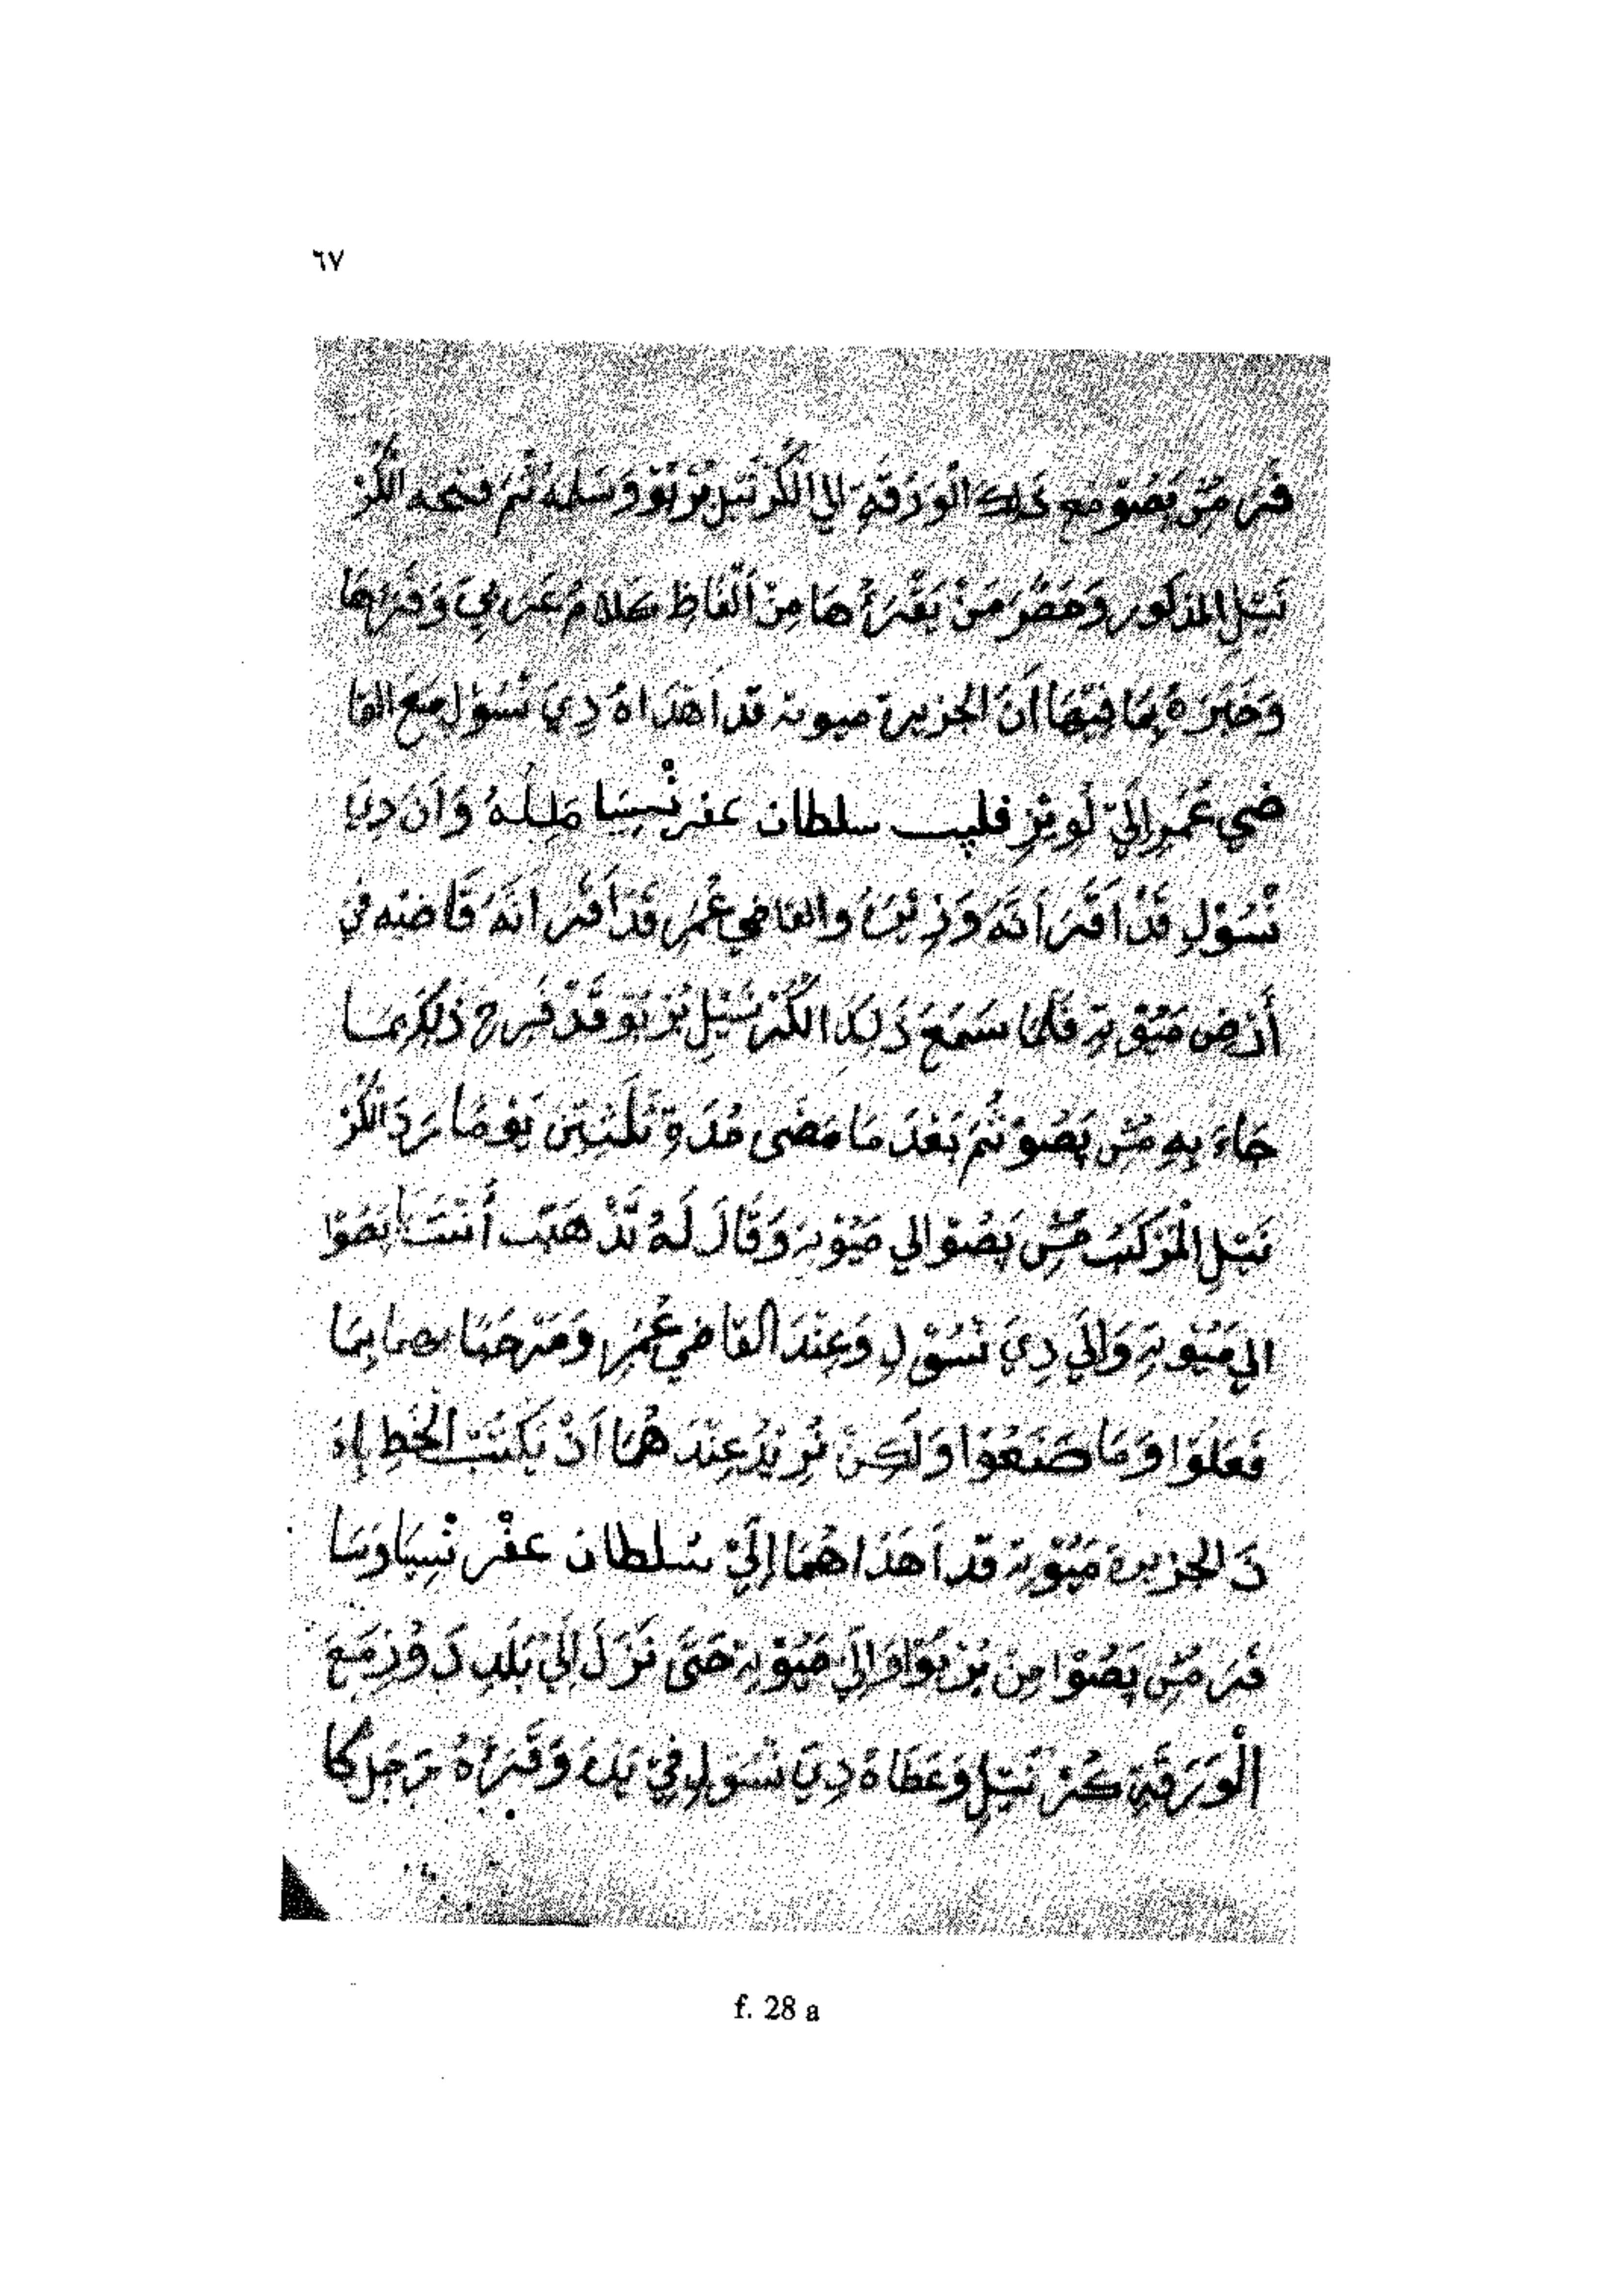 ٦٧
فَرَ مُسِ بَصُوْ مع ذلك الْوَرَقَةِ الي الكُرْنَيْلِ بُرْبُوْ وَسَلمه ثُمَ فتحه الْكُرْ
نَيْلِ المذكور وَحَضَرَ مَنْ يَقْرَأُهَا مِنْ اَلْفَاظِ كَلامُ عَرَبِيَ وَقَرَهَا
وَخَبَرَهُ بِمَا فِيْهَا أَنَ الجزيرة ميوته قد اَهْدَاهُ دِيَ نْسُوْلِ مَعَ القا
ضي عُمَرِ اِلَيْ لُوِيْزِ فليب سلطان عفرنْسِيَا مَلِكُهُ وَاَنَ دِيَ
نْسُوْلِ قَدْ اَقَرَ اَنَّهُ وَزِيْرُ والقاضي عُمَرِ قَدْ اَقَرَ اَنَّهُ قَاضيه في
أَرْضِ مَيُوْتِهِ فَلَمَا سَمِعَ ذَلِكَ الكُرْنَيْلِ بُرْبُوْ قَدْ فَرِحَ ذَلِكَ بِمَا
جَاءَ بِهِ مُسِ بَصُوْ ثُمَ بَعْدَ مَا مَضَى مُدَةِ ثَلَثِيْنَ يَوْمًا رَدَ الْكُرْ
نَيْلِ الْمَرْكَبْ مُسِ بَصُوْ الي مَيُوْته وَقَالَ لَهُ تَذْهَبْ أَنْتَ يَا بَصُوْا
الي مَيُوْتِهِ وَاِلَي دِيَ نْسُوْلِ وَعِنْدَ القاضي عُمَرِ وَمَرْحَبًا بهما بِمَا
فَعَلُوْا وَمَا صَنَعُوْا وَلَكِنْ نُرِيْدُ عِنْدَ هُمَا اَنْ يَكْتُبْ الْخَطِ بِاَ
نَ الجزيرة مَيُوْته قد اَهْدَاهُمَا اِلَيْ سُلطان عفْرنْسِيَا وَسَا
فَرَ مُسِ بَصُوْا مِنْ بُرْبُوْا وَاِلَي مَيُوْته حَتَّى نَزَلَ اِلَيْ بَلَدِ دَوُزِ مَعَ
الْوَرَقَةِ كُرْنَيْلِ وَعَطَاهُ دِيَ نْسُوْلِ فِيْ يَدُهُ وَقَرَأُهُ رَجُل كَا
f. 28 a